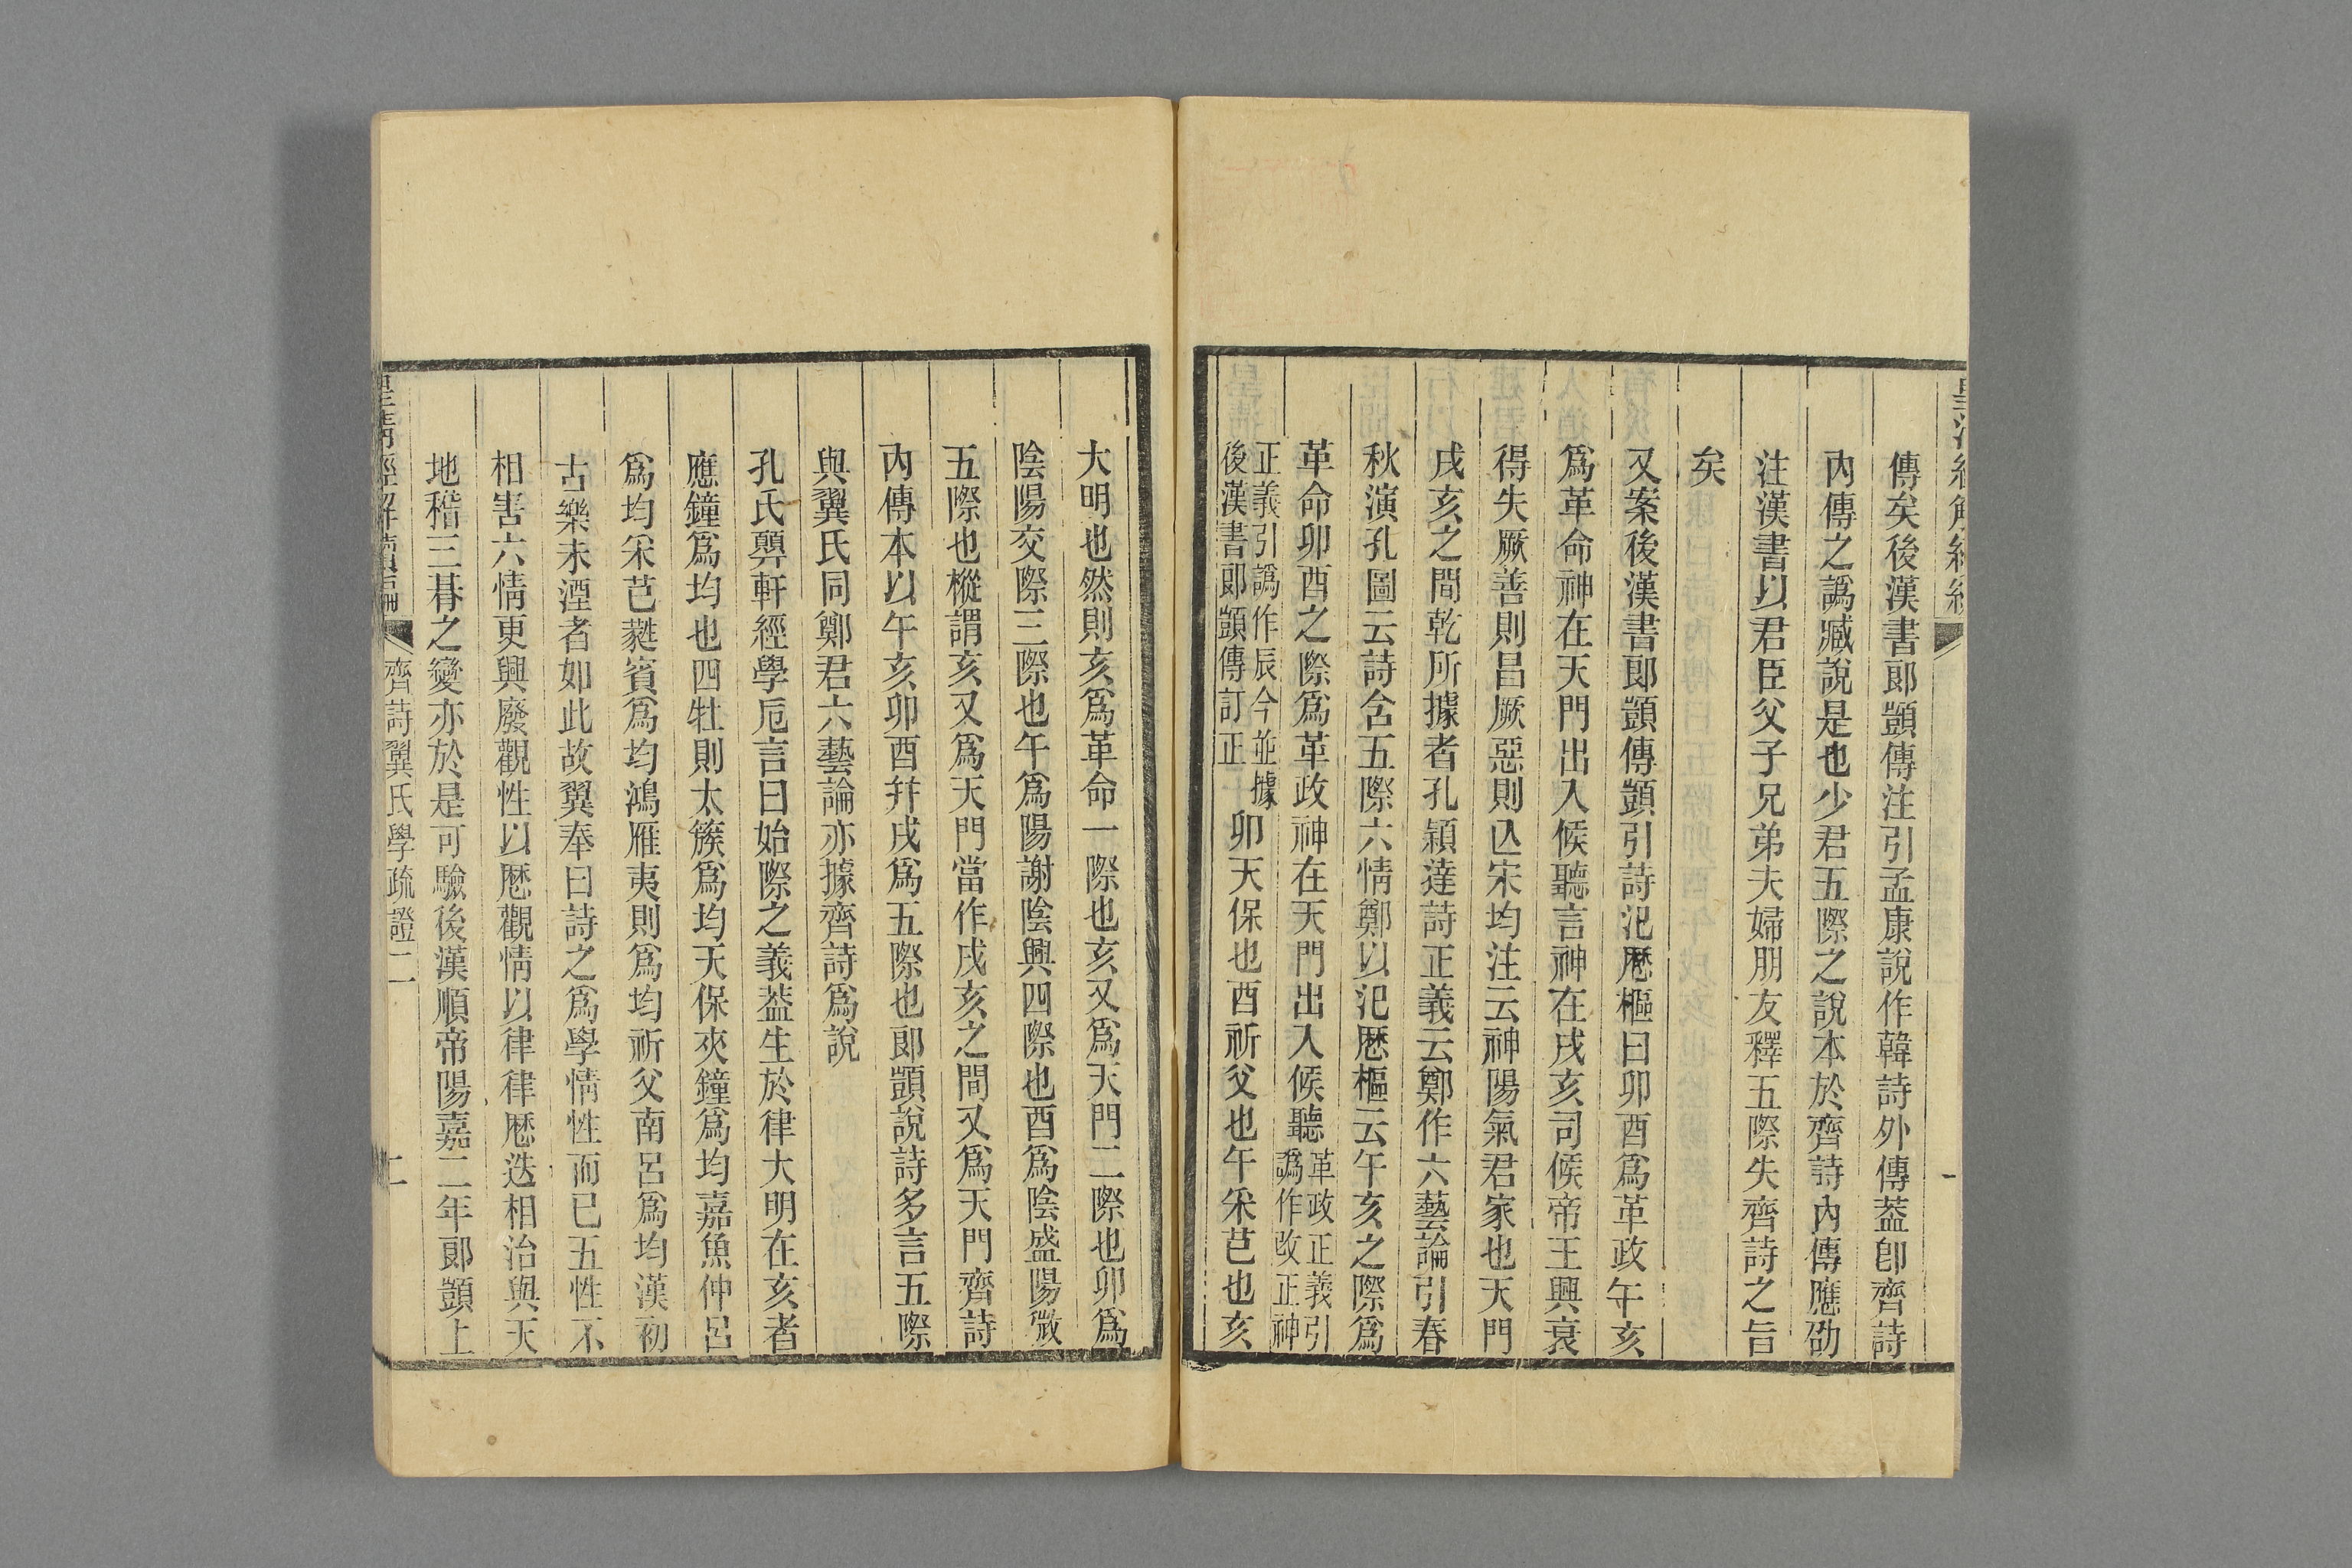 傳矣後漢書郎顗傳注引孟康說作韓詩外傳葢卽齊詩
內傳之譌臧說是也少君五際之說本於齊詩內傳應劭
注漢書以君臣父子兄弟夫婦朋友釋五際失齊詩之旨
矣
又案後漢書郎顗傳顗引詩汜厯樞曰卯酉爲革政午亥
爲革命神在天門出入候聽言神在戌亥司候帝王興衰
得失厥善則昌厥惡則亾宋均注云神陽氣君家也天門
戌亥之間乾所據者孔穎達詩正義云鄭作六藝論引春
秋演孔圖云詩含五際六情鄭以汜厯樞云午亥之際爲
革命卯酉之際爲革政神在天門出入候聽革政正義引譌作改正神
正義引譌作辰今並據後漢書郎顗傳訂正卯天保也酉祈父也午采芑也亥
大明也然則亥爲革命一際也亥又爲天門二際也卯爲
陰陽交際三際也午爲陽謝陰興四際也酉爲陰盛陽微
五際也樅謂亥又爲天門當作戌亥之間又爲天門齊詩
內傳本以午亥卯酉幷戌爲五際也郎顗說詩多言五際
與翼氏同鄭君六藝論亦據齊詩爲說
孔氏䢼軒經學卮言曰始際之義葢生於律大明在亥者
應鐘爲均也四牡則太簇爲均天保夾鐘爲均嘉魚仲呂
爲均采芑蕤賓爲均鴻雁夷則爲均祈父南呂爲均漢初
古樂未湮者如此故翼奉曰詩之爲學情性而已五性不
相害六情更興廢觀性以厯觀情以律律厯迭相治與天
地稽三朞之變亦於是可驗後漢順帝陽嘉二年郎顗上
皇淸經解續編 齊詩翼氏學疏證二 二